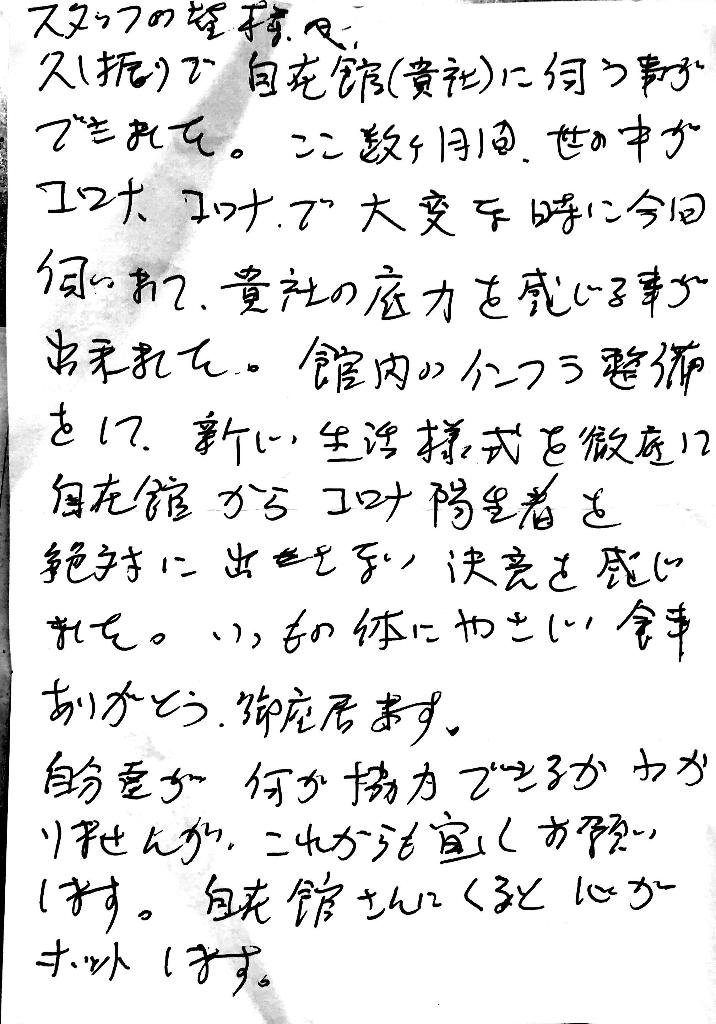 スタッフの皆様へ
久し振りで 自在館(貴社)に伺う事が
できました。ここ数ヶ月間、世の中が
コロナ、コロナ、で 大変な時に今回
伺いまして、貴社の底力を感じる事が
出来ました。館内のインフラ整備
をして、新しい生活様式を徹底して
自在館から コロナ陽生者を
絶対に出させない 決意を感じ
ました。いつもの体にやさしい食事
ありがとう、御座居ます。
自分達が 何が協力できるか わか
りませんが、これからも宜しくお願い
します。自在館さんにくると 心が
ホットします。